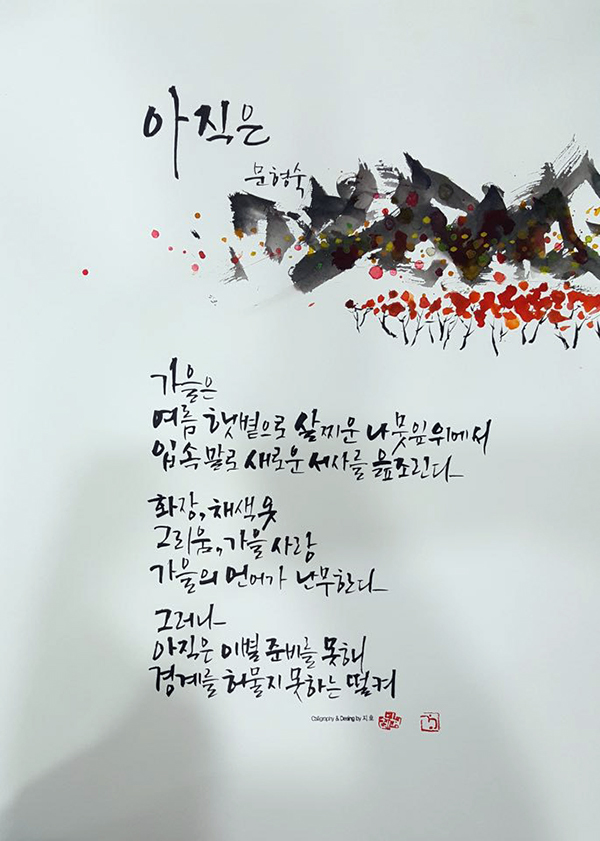 아직은
문형숙
가을은
여름 햇볕으로 살찌운 나뭇잎 위에서
입속말로 새로운 서사를 읊조린다
화장, 채색옷
그리움, 가을 사랑
가을의 언어가 난무한다
그러나
아직은 이별 준비를 못해
경계를 허물지 못하는 떨켜
Calligraphy & Desing by 지호